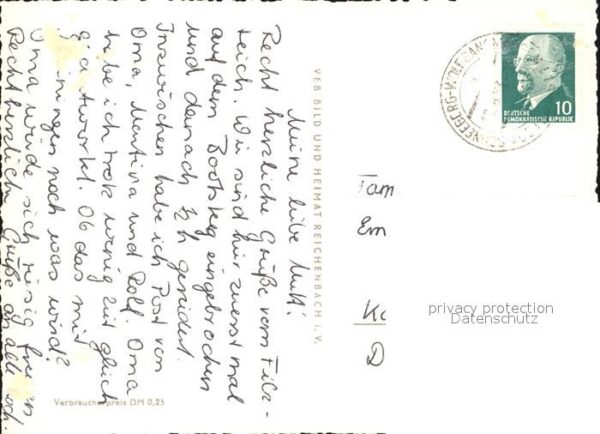 Meine liebe Mutti!
Recht herzliche Grüße vom Filz-
teich. Wir sind hier zuerst mal
auf dem Bootssteg eingebrochen
und danach ½ h gerudert.
Inzwischen habe ich Post von
Oma, Martina und Rolf. Oma
habe ich trotz wenig Zeit gleich
geantwortet. Ob das mit
noch was wird?
Oma würde sich riesig freuen
Recht herzliche Grüße an alle
VEB BILD UND HEIMAT REICHENBACH i. V.
Verbraucherpreis DM 0,25
SCHNEEBERG
10
DEUTSCHE
DEMOKRATISCHE REPUBLIK
Fam
Em
D
privacy protection
Datenschutz